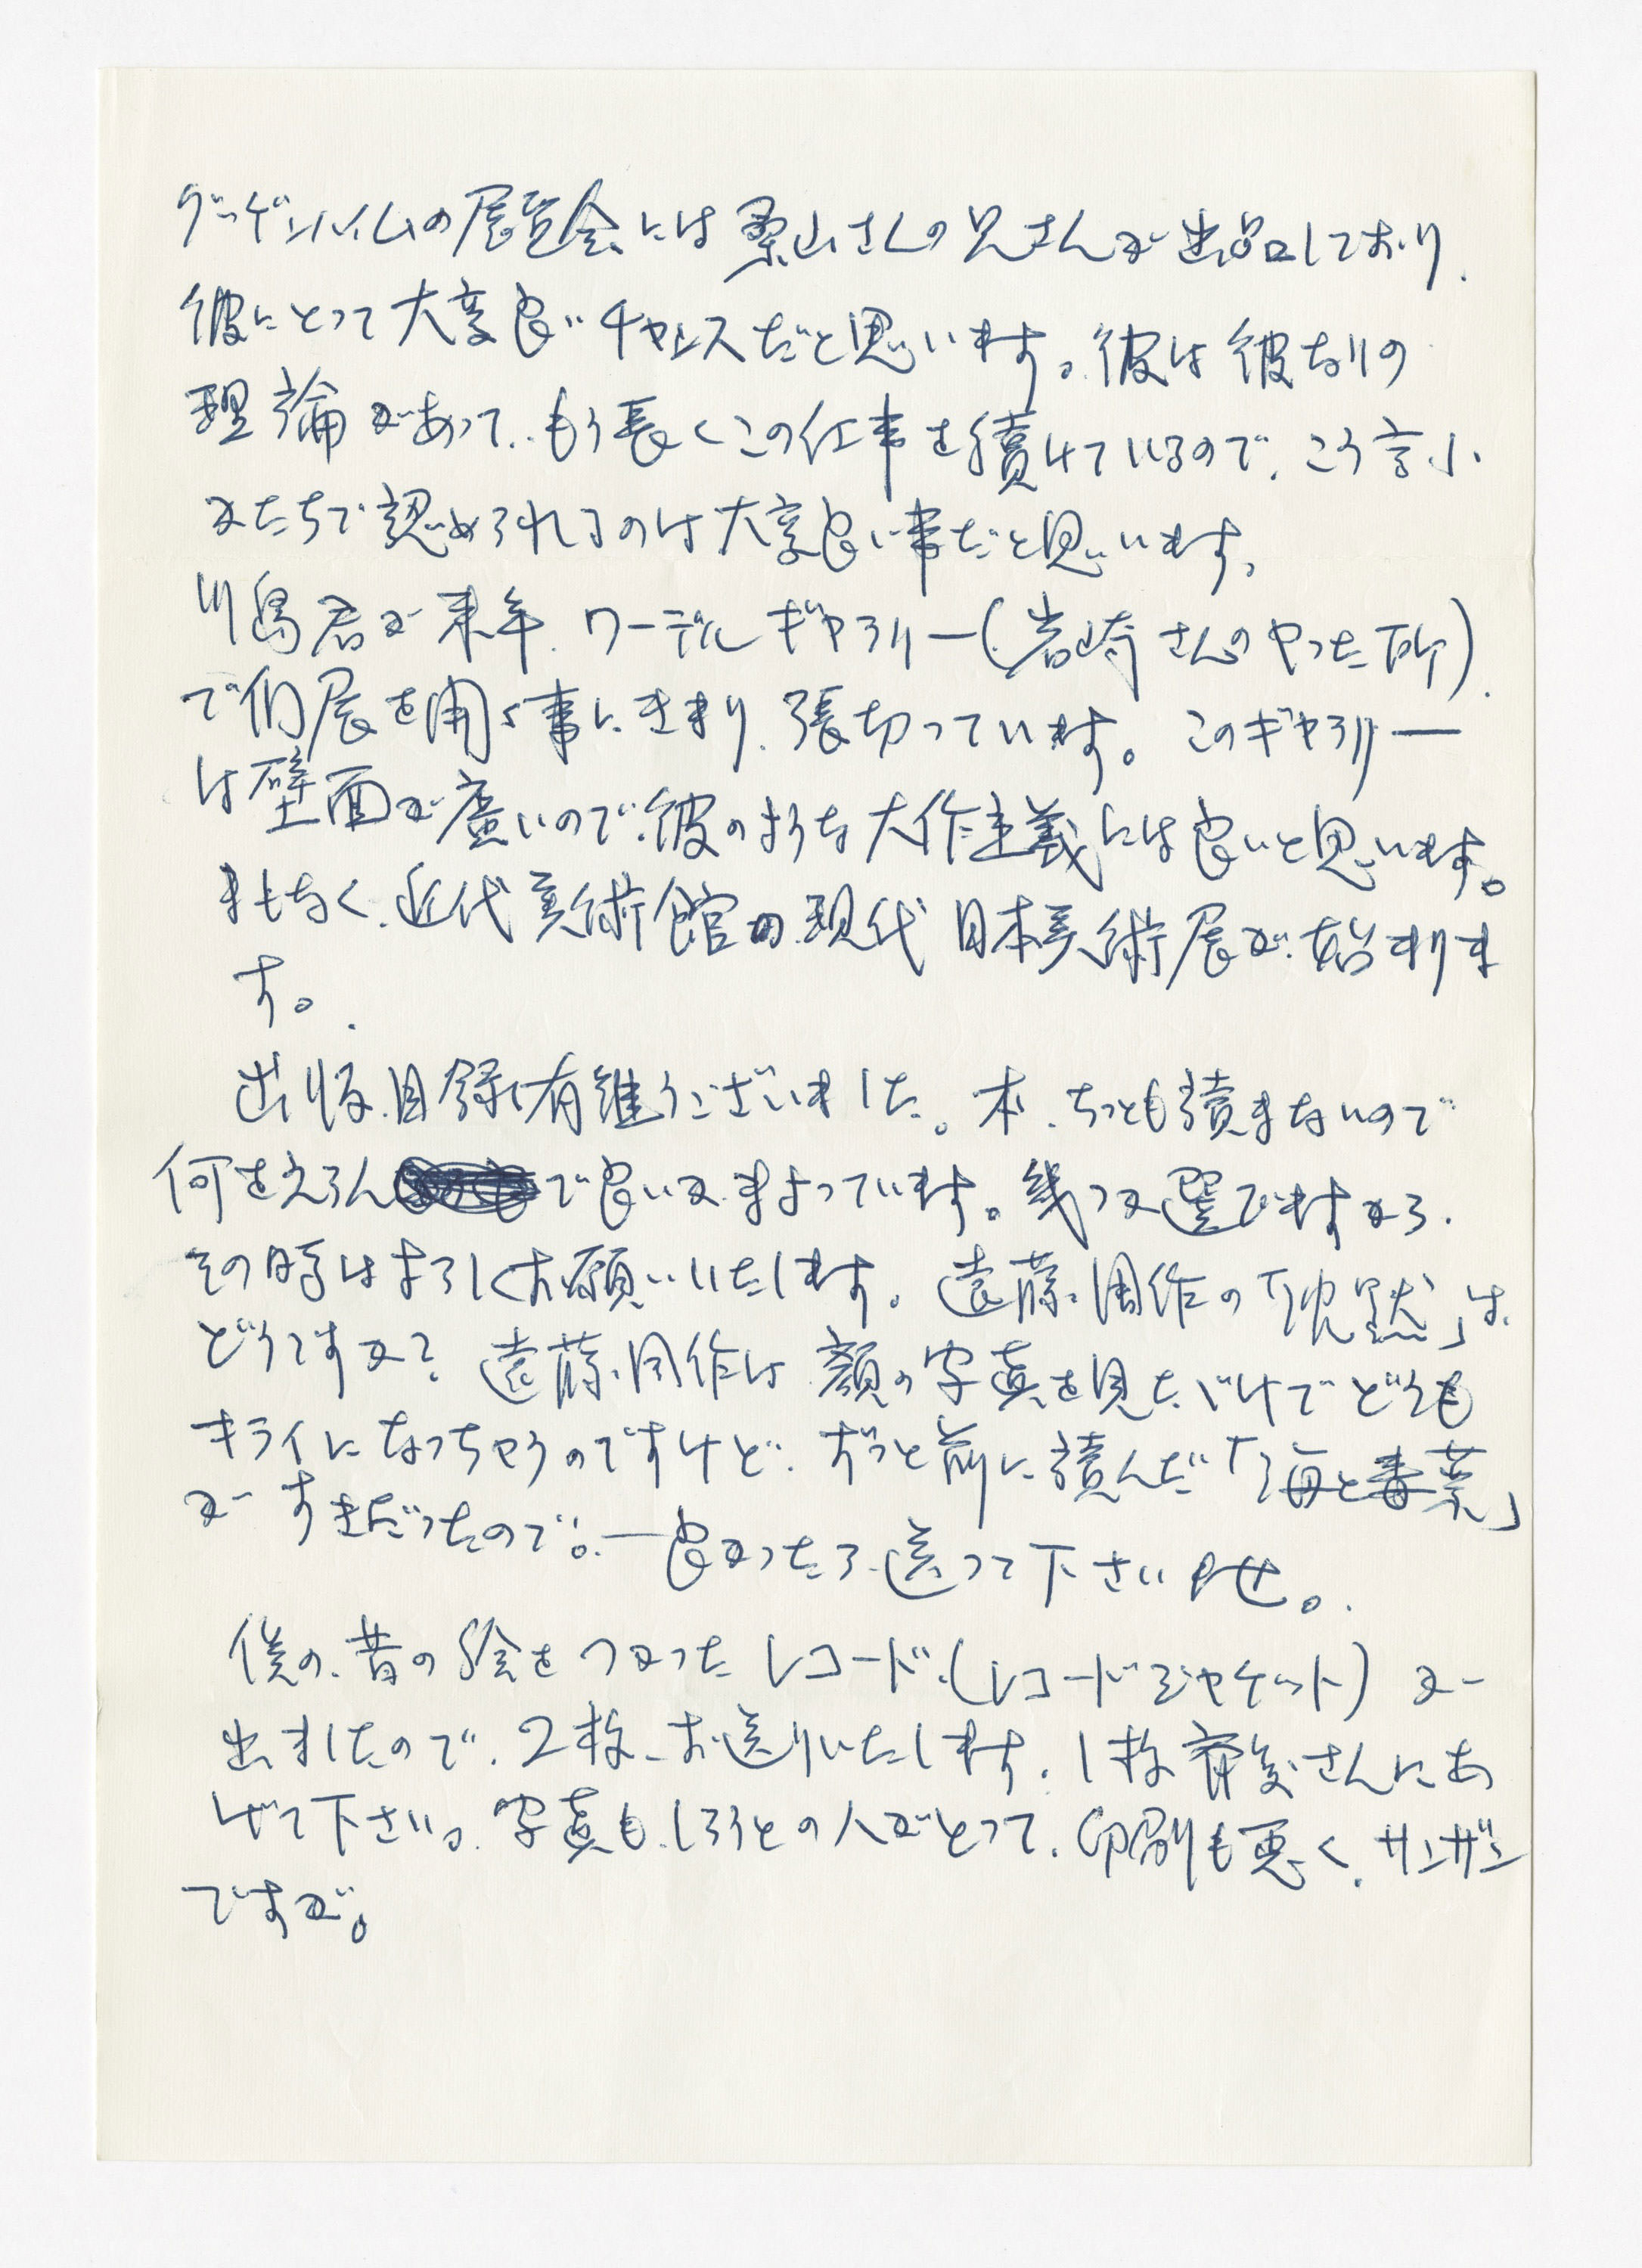 グッゲンハイムの展覧会には桑山さんの兄さんが出品しており、
彼にとって大変良いチャンスだと思います。彼は彼なりの
理論があって、もう長くこの仕事を続けているので、こう言ふ
かたちで認められるのは大変良い事だと思います。
川島君が来年、ワーデルギャラリー(岩崎さんのやった所)
で個展を開く事にきまり、張切っています。このギャラリー
は壁面が広いので、彼のような大作主義には良いと思います。
まもなく、近代美術館の現代日本美術展が始まりま
す。
出版目録有難うございました。本、ちっとも読まないので
何をえらんで良いかまよっています。幾つか選びますから、
その時はよろしくお願いいたします。遠藤周作の「沈黙」は、
どうですか?遠藤周作は顔の写真を見ただけでどうも
キライになっちゃうのですけど、ずっと前に読んだ「海と毒薬」
がすきだったので。—良かったら送って下さいませ。
僕の、昔の絵をつかったレコード(レコードジャケット)が
出ましたので、2枚お送りいたします。1枚さんにあ
げて下さい。写真も、しろうとの人がとって、印刷も悪く、サンザン
ですが。